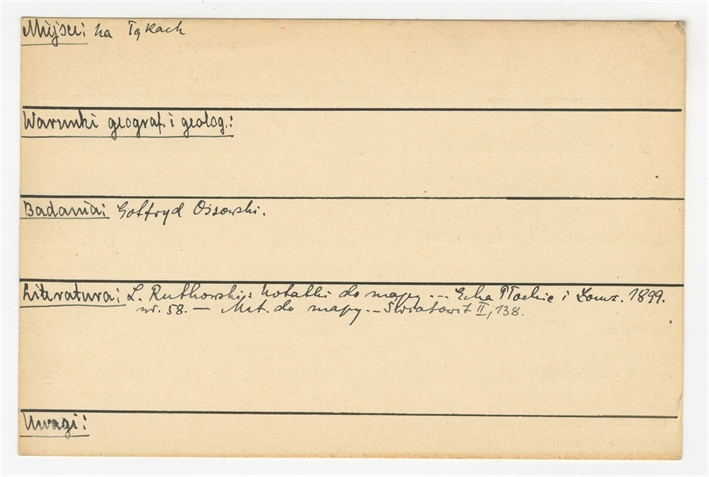 Miejsce: na Łąkach
Warunki geograf. i geolog.:
Badania: Gotfryd Ossowski.
Literatura: L. Rutkowski: Notatki do mapy ... Echa Płockie i Łomż. 1899.
nr. 58. — Mat. do mapy... Światowit II, 138.
Uwagi: